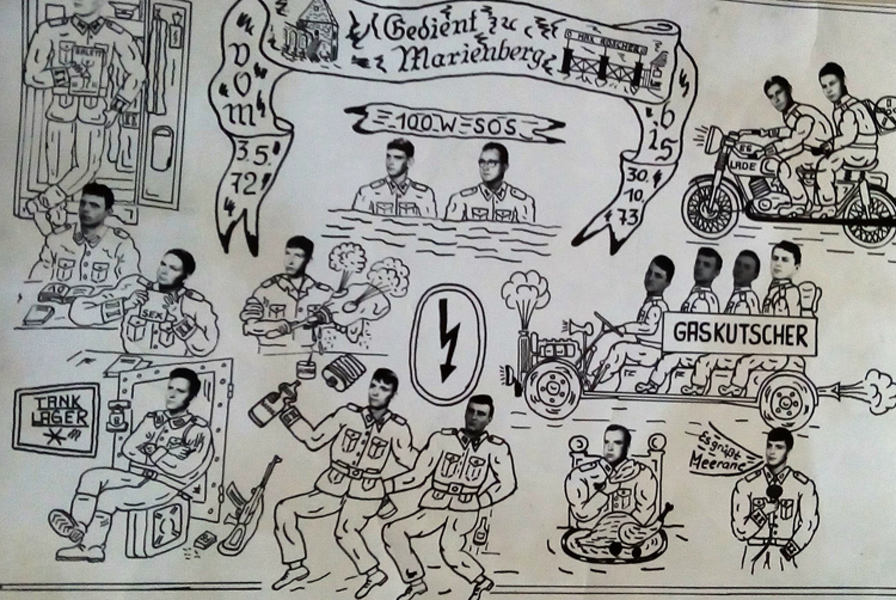 Gedient zu
Marienberg
MAX ROSCHER
vom
3.5.
72
bis
30.
10.
73
100 W-SOS
BALETT
SEX
GASKUTSCHER
TANK
LAGER
Es grüßt
Meerane